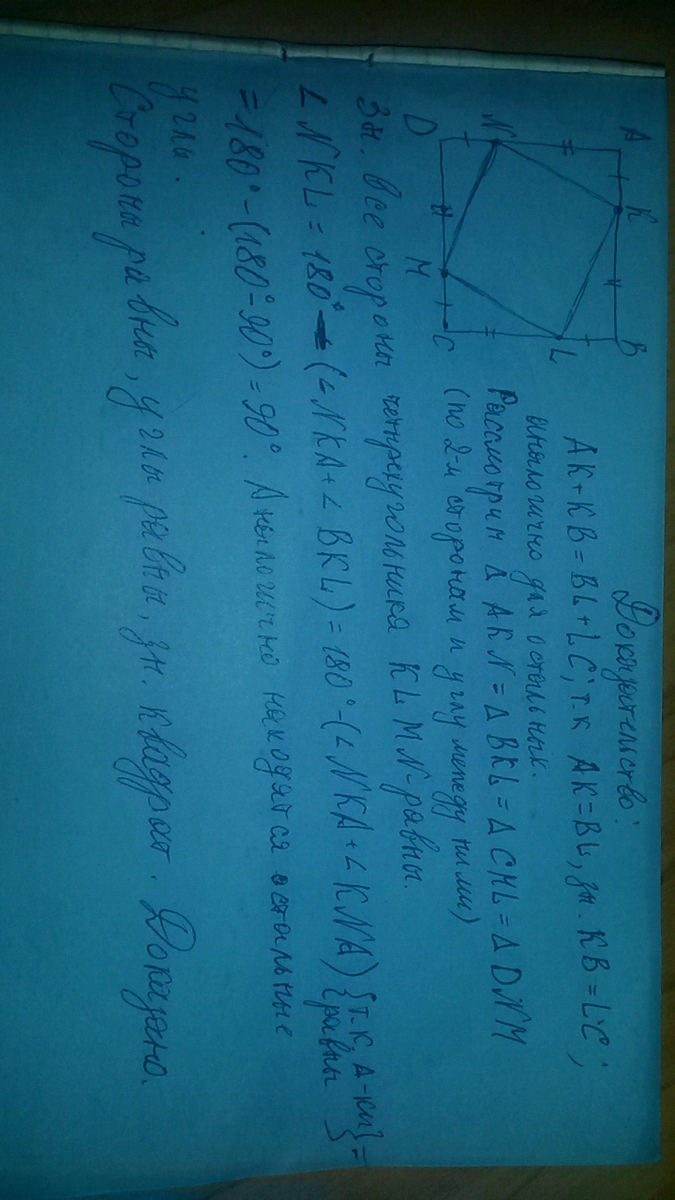 A K B
N L
D M C
Доказательство:
AK+KB=BL+LC; т.к AK=BL, зн. KB=LC;
аналогично для остальных.
Рассмотрим Δ AKN=Δ BKL=Δ CML=Δ DNM
(по 2-м сторонам и углу между ними)
Зн. все стороны четырехугольника KLMN-равны.
∠NKL=180°-(∠NKA+∠BKL)=180°-(∠NKA+∠KNA) {т.к. Δ-ки равны}=
=180°-(180°-90°)=90°. Аналогично находятся остальные
углы.
Стороны равны, углы равны, зн. квадрат. Доказано.